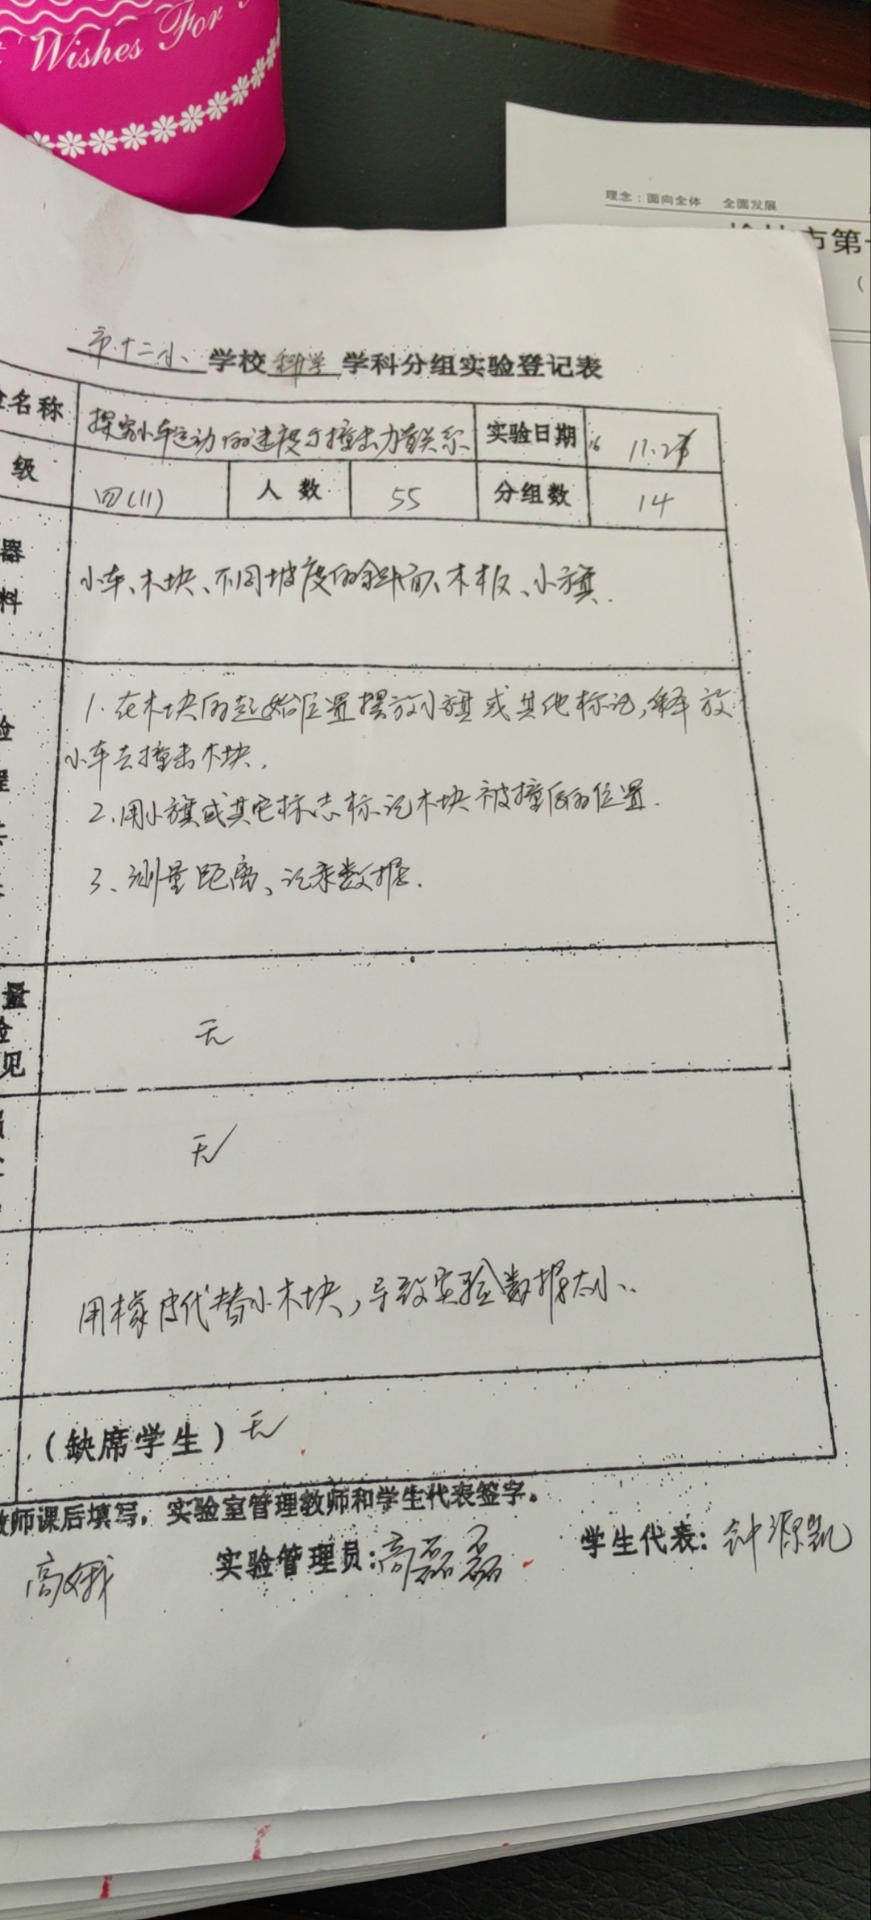 Wishes For
理念：面向全体 全面发展
市第
市十二小 学校 科学 学科分组实验登记表
名称 探究小车运动的速度与撞击力有关系 实验日期 11.2
级 四(11) 人数 55 分组数 14
器
料
小车、木块、不同坡度的斜面、木板、小旗.
1.在木块的起始位置摆放小旗或其他标记,释放
小车去撞击木块.
2.用小旗或其它标志标记木块被撞后的位置.
3、测量距离、记录数据.
量
见
无
无
用橡皮代替小木块,导致实验数据太小.
(缺席学生)无
教师课后填写，实验室管理教师和学生代表签字。
高娥 实验管理员:高磊磊 学生代表:钟源凯